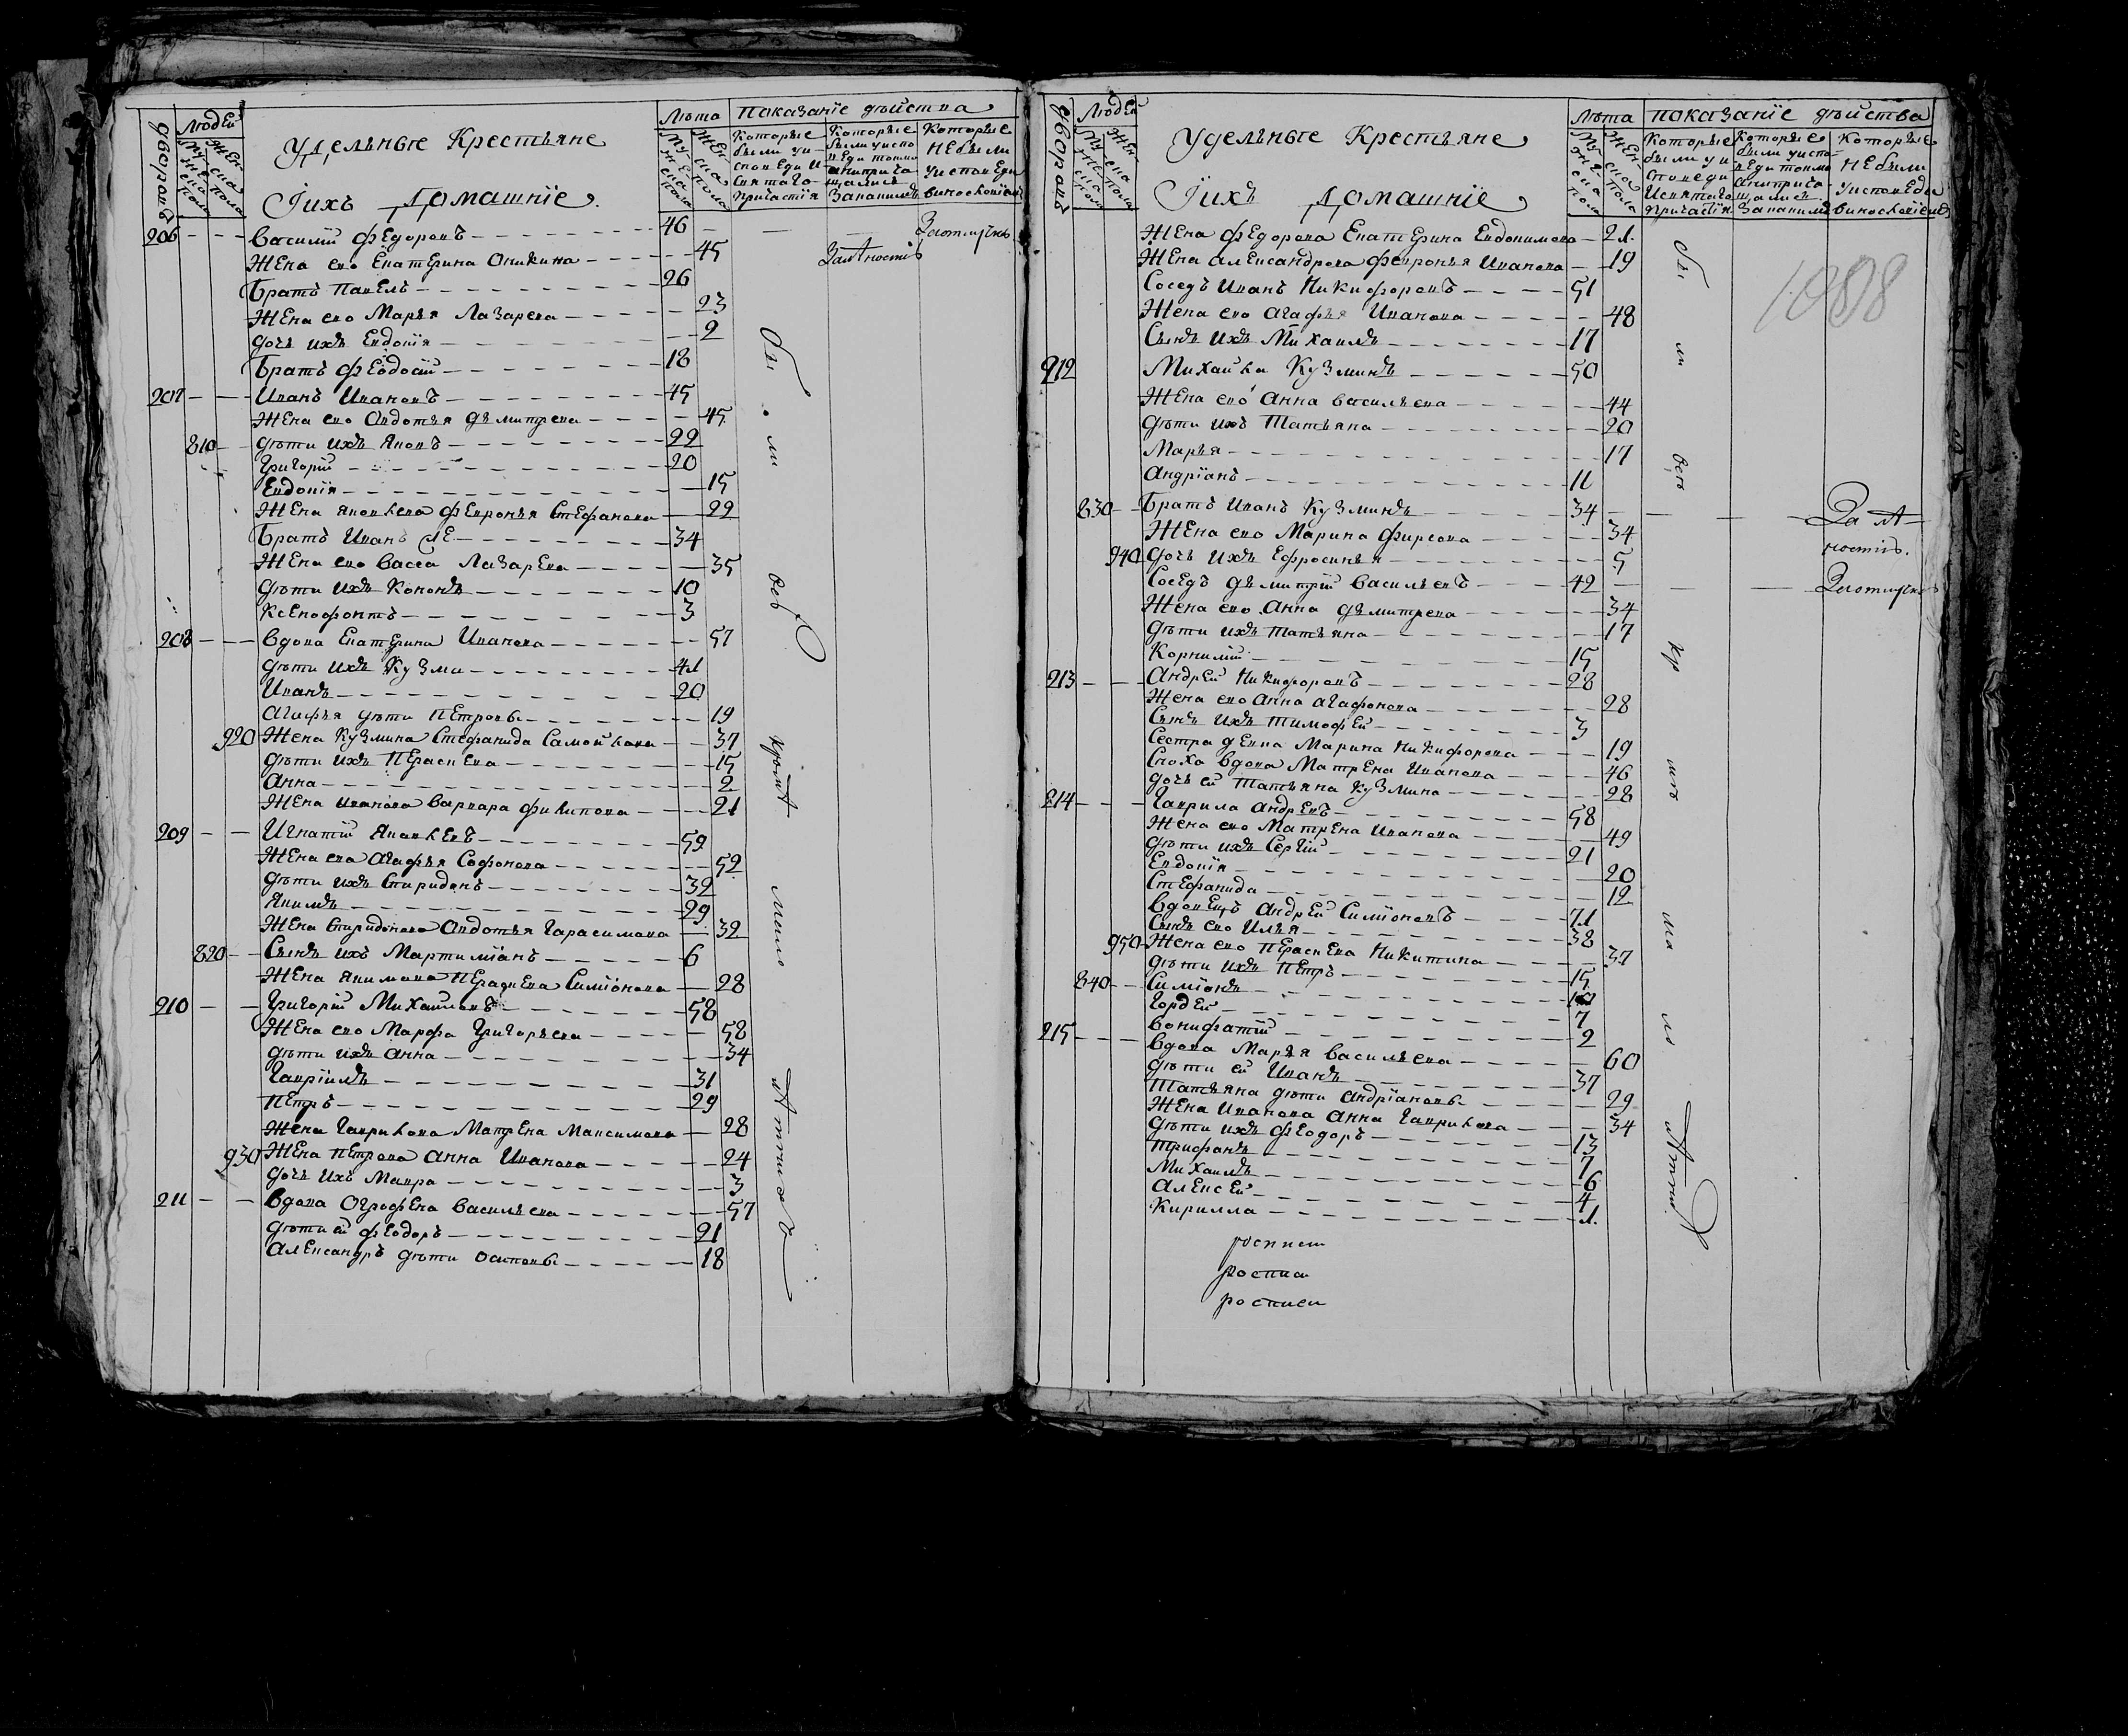 дворовъ
Людей
Мужеска пола
Женска пола
Удельные Крестьяне
Iихъ Домашнiе.
Лѣта
Мужеска пола
Женска пола
Показанiе дѣйства
Которые были уисповеди Исвятаго Причастiя
Которые были уисповеди токмо анипричащались Закакимъ
Которые Небыли уисповеди
206 Василiй Федоровъ 46 Заотлучкою
Жена ево Екатерина Оникина 45 Залѣностiю
Братъ Павелъ 26
Жена ево Марья Лазарева 23
дочь ихъ Евдокiя 2
Братъ Феодосiй 18
207 Иванъ Ивановъ 45
Жена ево Авдотья Дьмитрева 45
810 дѣти ихъ Яковъ 22
Григорiй 20
Евдокiя 15
Жена яковлева Февронья Стефанова 22
Братъ Иванъ 34
Жена ево Васса Лазарева 35
дѣти ихъ Кононъ 10
Ксенофонтъ 3
208 вдова Екатерина Иванова 57
дѣти ихъ Кузма 41
Иванъ 20
Агафья дѣти Петровы 19
920 Жена Кузмина Стефанида Самойлова 37
дѣти ихъ Перасковa 15
Анна 2
Жена иванова Варвара Филипова 21
209 Игнатiй Яковлевъ 59
Жена ева Агафья Софонова 52
дѣти ихъ Спиридонъ 32
Якимъ 29
Жена Спиридонова Авдотья Гарасимова 32
820 Сынъ ихъ Мартимiанъ 6
Жена Якимова Пераскева Симiонова 28
210 Григорiй Михайловъ 58
Жена ево Марфа Григорьева 58
дѣти ихъ анна 34
Гаврiилъ 31
Петръ 29
Жена Гаврилова Матрена Максимова 28
930 Жена Петрова Анна Иванова 24
дочь ихъ Мавра 3
211 вдова Огрофена Васильева 57
дѣти ей Феодоръ 21
Александръ дѣти осиповы 18
дворовъ
Людей
Мужеска пола
Женска пола
Удельные Крестьяне
Iихъ Домашнiе
Лѣта
Мужеска пола
Женска пола
показанiе дѣйства
Которые были уисповеди Исвятаго причастiя
Которые были уисповеди токмо анипричащались Закакимъ
Которые Небыли уисповеди
1088
Жена Федорова Екатерина Евдокимова 21
Жена Александрова Февронья Иванова 19
Соседъ Иванъ Никифоровъ 51
Жена ево Агафья Иванова 48
Сынъ ихъ Михаилъ 17
212 Михайла Кузминъ 50
Жена ево Анна васильева 44
дѣти ихъ Татьяна 20
Марья 17
Андрiанъ 11
830 Братъ Иванъ Кузминъ 34 Залѣностiю.
Жена ево Марина Фирсова 34
940 дочь ихъ Ефросинья 5
Соседъ дьмитрiй васильевъ 42 Заотлучкою
Жена ево Анна дьмитрева 34
дѣти ихъ татьяна 17
Корнилiй 15
213 Андрей Никифоровъ 28
Жена ево Анна Агафонова 28
Сынъ ихъ тимофей 3
Сестра девка Марина Никифорова 19
Сноха вдова Матрена Иванова 46
дочь ей татьяна Кузмина 28
214 Гаврила андревъ 58
Жена ево Матрена Иванова 49
дѣти ихъ Сергiй 21
Евдокiя 20
Стефанида 12
вдовецъ Андрей Симiоновъ 71
Сынъ ево Илья 38
950 Жена ево Пераскева Никитина 37
дѣти ихъ Петръ 15
840 Симiонъ
Гордей 7
вонифатiй 2
215 вдова Марья васильева 60
дѣти ей Иванъ 37
Татьяна дѣти Андрiановы 29
Жена Иванова Анна Гаврилова 34
дѣти ихъ Феодоръ 13
Трифанъ 7
Михаилъ 6
Алексей 4
Кирилла 1
роспись